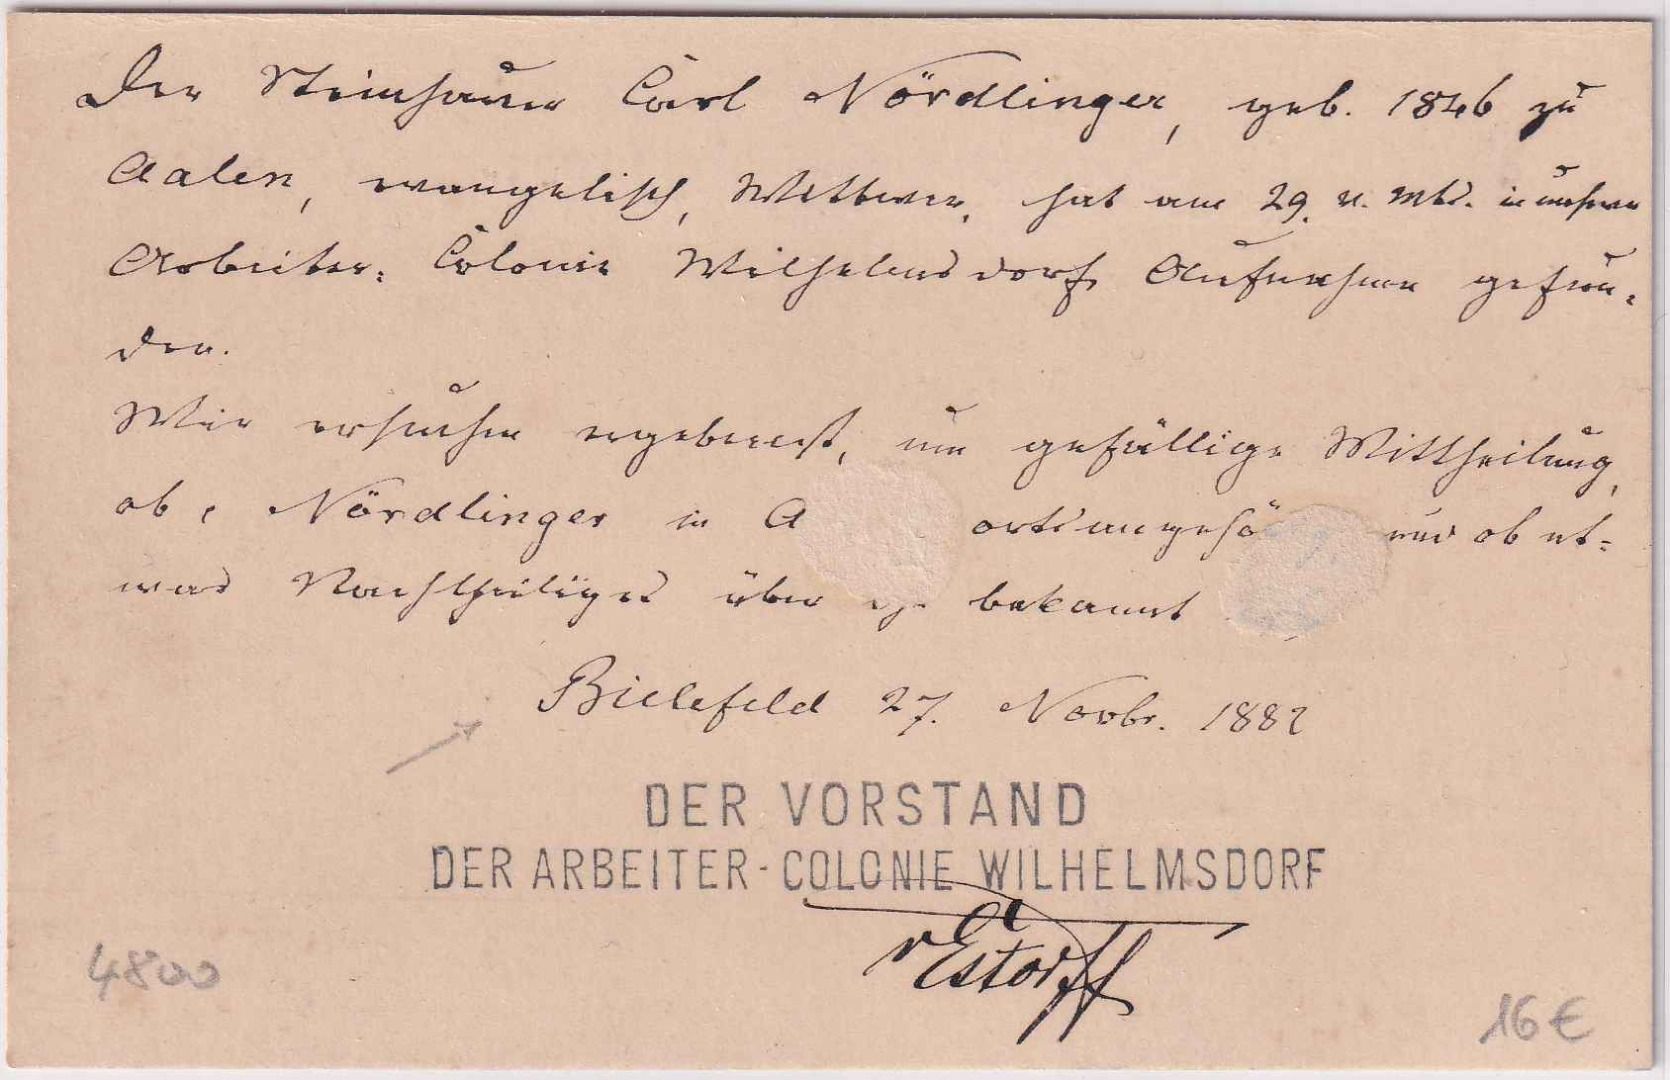 Der Steinhauer Carl Nördlinger, geb. 1846 zu
Aalen, evangelisch, Wittwer, hat am 29. v. Mts. in unserer
Arbeiter-Colonie Wilhelmsdorf Aufnahme gefun-
den.
Wir ersuchen ergebenst, um gefällige Mittheilung,
ob Nördlinger in A ortsangehö und ob et-
was Nachtheiliges über ihn bekannt
Bielefeld 27. Novbr. 1882
DER VORSTAND
DER ARBEITER-COLONIE WILHELMSDORF
v Estorff
4800
16 €